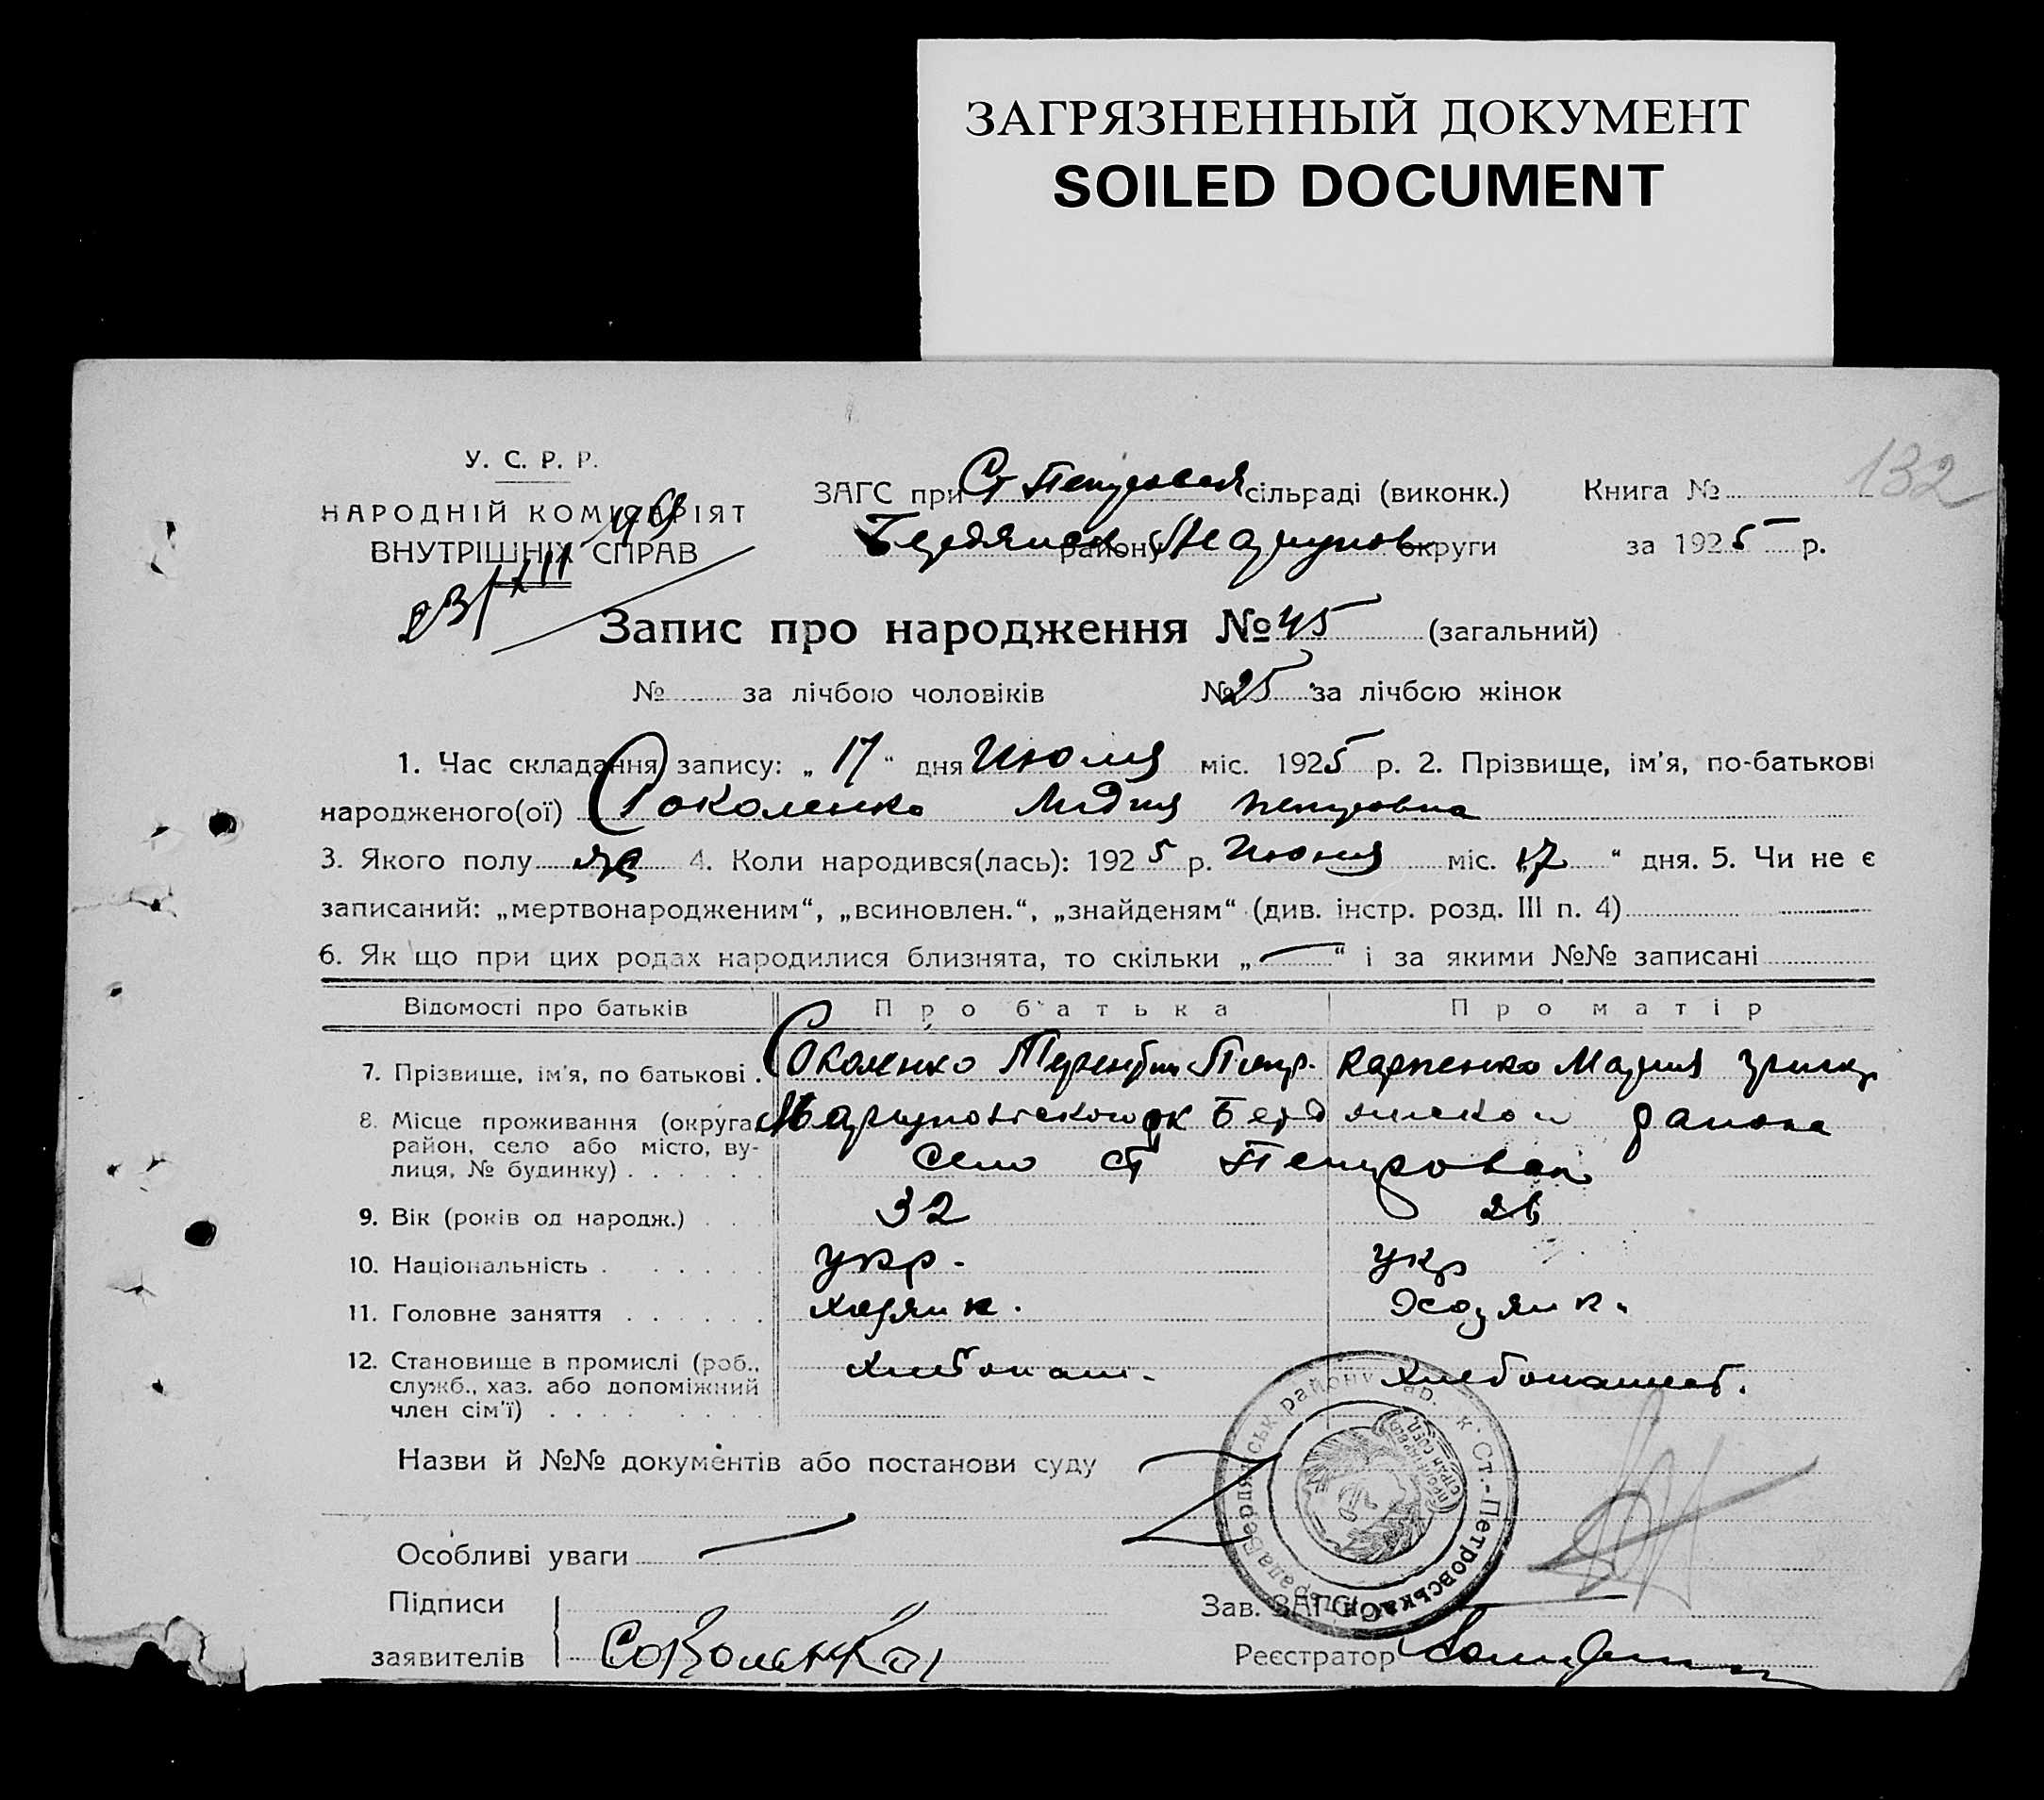 ЗАГРЯЗНЕННЫЙ ДОКУМЕНТ
SOILED DOCUMENT
132
У. С. Р. Р.
НАРОДНІЙ КОМІСАРІЯТ
ВНУТРІШНІХ СПРАВ
ЗАГС при Ст Петровская сільраді (виконк.) Книга №
Бердянск району Мариупов округи за 1925 р.
Запис про народження № 45 (загальний)
№ за лічбою чоловіків № 25 за лічбою жінок
1. Час складання запису: „ 17 “ дня Июля міс. 1925 р. 2. Прізвище, ім’я, по-батькові
народженого(ої) Соколенко Лидия Петровна
3. Якого полу 4. Коли народився(лась): 1925 р. Июня міс. 17 “ дня. 5. Чи не є
записаний: „мертвонародженим“, „всиновлен.“, „знайденям“ (див. інстр. розд. III п. 4)
6. Як що при цих родах народилися близнята, то скільки „ — “ і за якими №№ записані
Відомості про батьків Про батька Про матір
7. Прізвище, ім’я, по батькові . Соколенко Петр. Карпенко Мария
8. Місце проживання (округа, Бердянском района
район, село або місто, ву-
лиця, № будинку) . . . . . . Село ст Петровка
9. Вік (років од народж.) . . . 32
10. Національність . . . . . . укр. укр
11. Головне заняття . . . . . . хозяик. Хозяик.
12. Становище в промислі (роб., хлебопаш. хлебопашест.
служб., хаз. або допоміжний
член сім’ї) . . . . . . . .
Назви й №№ документів або постанови суду
Особливі уваги —
Підписи Зав. ЗАГС
заявителів Соколенко Реєстратор